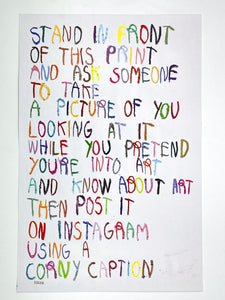 STAND IN FRONT
OF THIS PRINT
AND ASK SOMEONE
TO TAKE
A PICTURE OF YOU
LOOKING AT IT
WHILE YOU PRETEND
YOU'RE INTO ART
AND KNOW ABOUT ART
THEN POST IT
ON INSTAGRAM
USING A
CORNY CAPTION